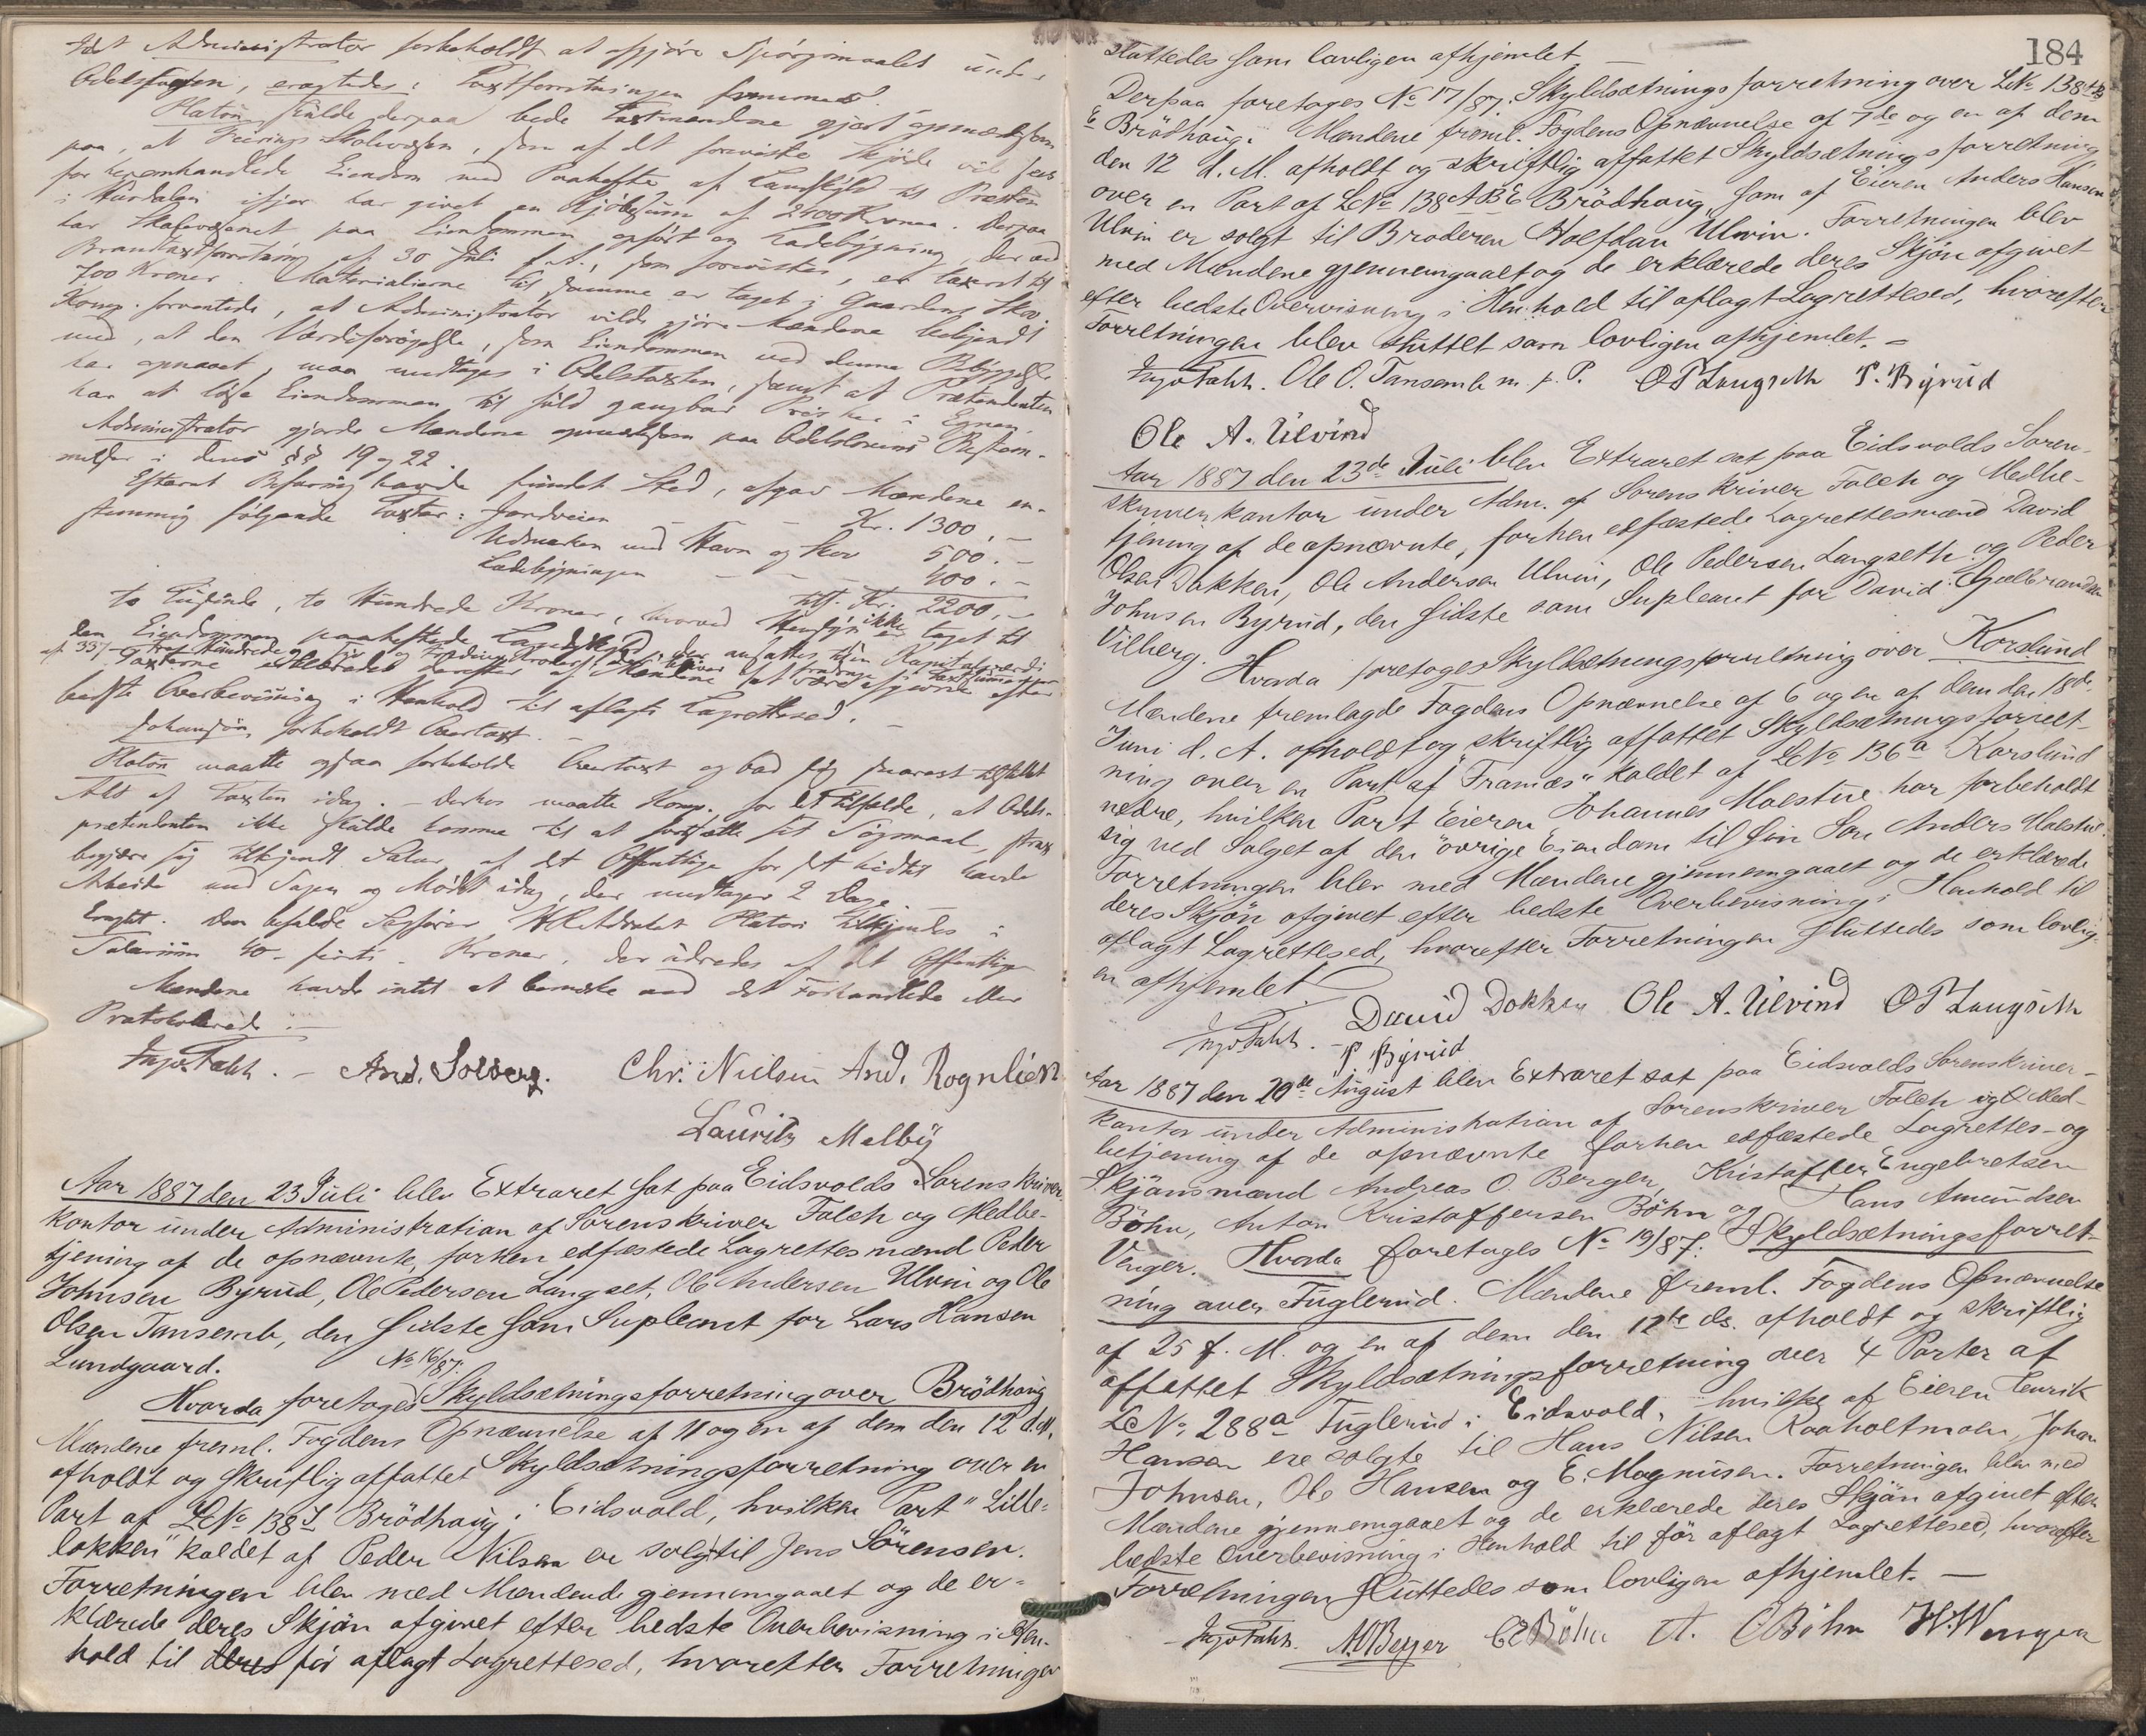 idet Administrator forbeholdt at afgjöre Spörgsmaalet under
Odelstaxten, eragtedes: Taxtforretningen fremmes.
Platou skulde derpaa bede Taxtmændene gjort opmærksom
paa, at Feirings Skolevæsen, som af det foreviste Skjöde vil sees
for heromhandlede Eiendom med Paahefte af Landskyld til Præsten
i Hurdalen ifjor har givet en Kjöbesum af 2400 Kroner. Derpaa
har Skolevæsenet paa Eiendommen opfört en Ladebygning, der ved
Brandtaxtforretning af 30 Juli f.A., som forevistes, er taxeret til
700 Kroner. Materialierne til samme er taget i Gaardens Skov.
Komp. forventede, at Administrator vilde gjöre Mændene bekjendt
med, at den Værdiforögelse, som Eiendommen ved denne Bebyggelse
har opnaaet, maa medtages i Odelstaxten, samt at Prætendenten
har at löse Eiendommen til fuld gangbar Pris her i Egnen.
Administrator gjorde Mændene opmærksom paa Odelslovens Bestem-
melser i dens §§ 19 og 22.
Efterat Befaring havde fundet Sted, afgav Mændene en-
stemmig fölgende Taxter: Jordveien Kr. 1300.-
Udmarken med Havn og Skov 500.-
Ladebygningen - - - 400.-
tils. Kr. 2200,-
to Tusinde, to Hundrede Kroner, hvorved Hensyn ikke er taget til
den Eiendommen paaheftede Landskyld, der ansattes til en Kapitalværdi
Taxterne erklæredes derefter af Mændene at være afgivne efter
bedste Overbevisning i Henhold til aflagt Lagrettesed.-
Johansön forbeholdt Overtaxt.-
Platou maatte ogsaa forbeholde Overtaxt og bad sig snarest tilstillet
Akt af Taxten idag. - Derhos maatte Komp. for det Tilfælde, at Odels-
prætendenten ikke skulde komme til at fortsætte sit Sögsmaal, strax
begjære sig tilkjendt Salær af det Offentlige for det hidtil havde
Arbeide med Sagen og Mödet idag, der medtager 2 Dage.
Eragtet. Den befalede Sagförer Platou tilkjendes i
Salarium 40 - firti - Kroner, der udredes af det Offentlige
Mændene havde intet at bemærke ved det Forhandlede eller
Protokollerede.-
And. Solberg. Chr. Nielsen And. Rognlien
Lauritz Melby
Aar 1887 den 23 Juli blev Extraret sat paa Eidsvolds Sorenskriver-
kontor under Administration af Sorenskriver Falch og Medbe-
tjening af de opnævnte, forhen edfæstede Lagrettesmænd Peder
Johnsen Byrud, Ole Pedersen Langset, Ole Andersen Ulvin og Ole
Olsen Tansemb, den sidste som Supleant for Lars Hansen
Lundgaard. No 16/87:
Hvorda foretoges Skyldsætningsforretning over Brödhaug
Mændene freml. Fogdens Opnævnelse af 11 og en af dem den 12 d.M.
afholdt og skriftlig affattet Skyldsætningsforretning over en
Part af LNo 138 Brödhaug i Eidsvold, hvilken Part "Lille-
lokken" kaldet af Peder Nilsen er solgt til Jens Sörensen.
Forretningen blev med Mændende gjennemgaaet og de er-
klærede deres Skjön afgivet efter bedste Overbevisning i Hen-
hold til deres för aflagt Lagrettesed, hvorefter Forretningen
184
sluttedes som lovligen afhjemlet.
Derpaa foretoges No 17/87. Skyldsætningsforretning over LNo 138
E Brödhaug. Mændene freml. Fogdens Opnævnelse af 7de og en af dem
den 12 d.M. afholdt og skriftlig affattet Skyldsætningsforretning
over en Part af LNo 138 ABE Brödhaug, som af Eieren Anders Hansen
Ulvin er solgt til Broderen Halfdan Ulvin. Forretningen blev
med Mændene gjennemgaaet og de erklærede deres Skjön afgivet
efter bedste Overvisning i Henhold til aflagt Lagrettesed, hvorefter
Forretningen blev sluttet som lovligen afhjemlet.-
Ole O. Tansemb m. p. P. O P Langseth P. Byrud
Ole A. Ulvind
Aar 1887 den 23de Juli blev Extraret sat paa Eidsvolds Soren-
skriverkontor under Adm. af Sorenskriver Falch og Medbe-
tjening af de opnævnte, forhen edfæstede Lagrettesmænd David
Olsen Dokken, Ole Andersen Ulvin, Ole Pedersen Langseth og Peder
Johnsen Byrud, den sidste som Supleant for David Gulbrandsen
Vilberg.
Hvorda foretoges Skyldsætningsforretning over Korslund
Mændene fremlagde Fogdens Opnævnelse af 6 og en af dem den 18de
Juni d. A. afholdt og skriftlig affattet Skyldsætningsforret-
ning over en Part af "Framæs" kaldet af LNo 136a Korslund
nedre, hvilken Part Eieren Johannes Molstue har forbeholdt
sig ved Salget af den övrige Eiendom til sin Sön Anders Molstue.
Forretningen blev med Mændene gjennemgaaet og de erklærede
deres Skjön afgivet efter bedste Overbevisning i Henhold til
aflagt Lagrettesed, hvorefter Forretningen sluttedes som lovlig-
en afhjemlet.
David Dokken Ole A. Ulvind O P Langseth
P Byrud
Aar 1887 den 20de August blev Extraret sat paa Eidsvolds Sorenskriver-
kontor under Administration af Sorenskriver Falch og Med-
betjening af de opnævnte forhen edfæstede Lagrettes- og
Skjönsmænd Andreas O. Berger, Kristoffer Engebretsen
Böhn, Anton Kristoffersen Böhn og Hans Amundsen
Venger. Hvorda foretoges No 19/87: Skyldsætningsforret-
ning over Fuglerud. Mændene freml. Fogdens Opnævnelse
af 25 f. M. og en af dem den 12te ds. afholdt og skriftlig
affattet Skyldsætningsforretning over 4 Parter af
LNo. 288a Fuglerud i Eidsvold, hvilke af Eieren Henrik
Hansen ere solgte til Hans Nilsen Raaholtmoen, Johan
Johnsen, Ole Hansen og E. Magnusen. Forretningen blev med
Mændene gjennemgaaet og de erklærede deres Skjön afgivet efter
bedste Overbevisning i Henhold til för aflagt Lagrettesed, hvorefter
Forretningen sluttedes som lovligen afhjemlet.-
C E Böhn A. C Böhn